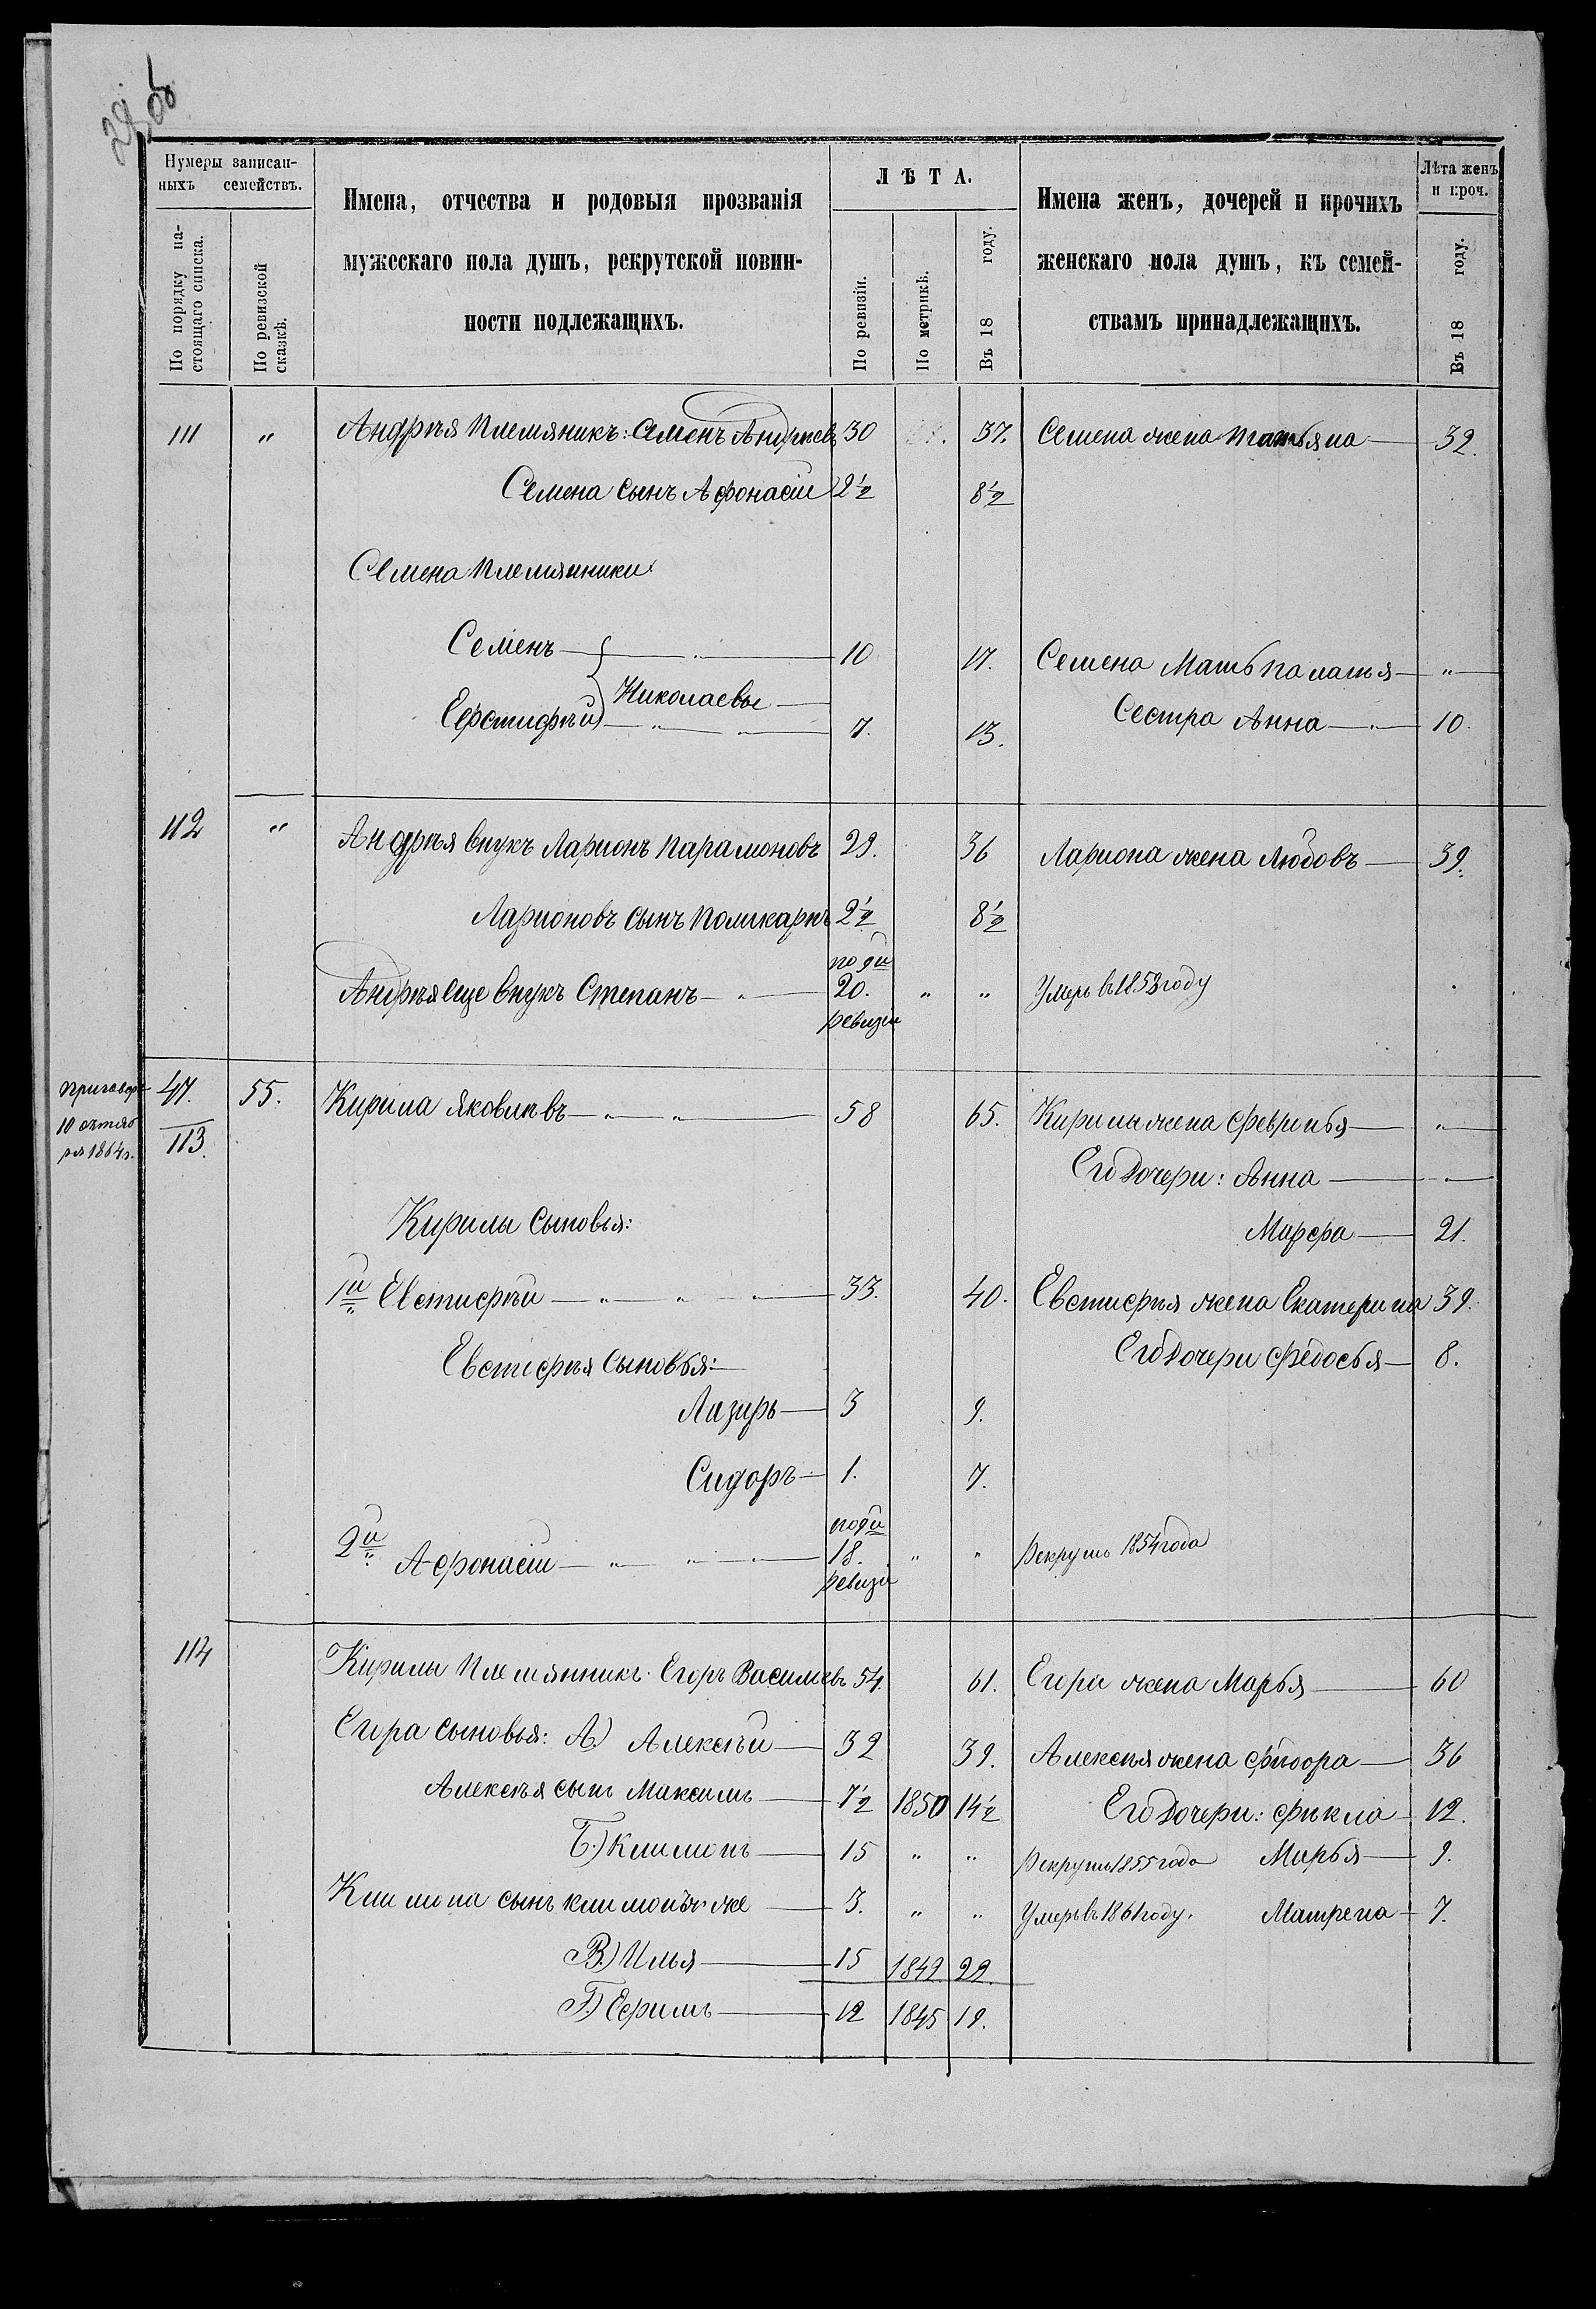 29 об
Нумеры записан-
ныхъ семействъ.
По порядку на-
стоящаго списка.
По ревизской
сказкѣ.
Имена, отчества и родовыя прозванія
мужескаго пола душъ, рекрутской повин-
ности подлежащихъ.
ЛѢТА.
По ревизіи.
По метрикѣ.
Въ 18 году.
Имена женъ, дочерей и прочихъ
женскаго пола душъ, къ семей-
ствамъ принадлежащихъ.
Лѣта женъ
и проч.
Въ 18 году.
111 " Андрѣя племяникъ: Семенъ Андреевъ 30 37. Семена жена Татьяна 32.
Семена сынъ Афонасій 2½ 8½
Семена племянники
Семенъ 10 17. Семена мать Палагья "
Николаевы
Евстифѣй 7. 13. Сестра Анна 10.
112 " Андрѣя внукъ Ларионъ Парамоновъ 29. 36 Лариона жена Любовь 39.
Ларионовъ сынъ Поликарпъ 2½ 8½
по 9й
Андрѣя еще внукъ Степанъ 20. " " Умеръ въ 1858 году
ревизіи
Приговоръ 47. 55. Кирила Яковлевъ 58 65. Кирилы жена Февронья "
10 октяб
ря 1864 г. 113. Его дочери: Анна "
Кирилы сыновья: Марфа 21.
1й Евстифѣй 33. 40. Евстифѣя жена Екатерина 39.
Евстифѣя сыновья: Его дочери Федосья 8.
Лазарь 3 9.
Сидоръ 1. 7.
по 9й
2й Афонасій 18. " " Рекрутъ 1854 года
ревизіи
114 Кирилы племянникъ Егоръ Васильевъ 54. 61. Егора жена Марья 60
Егора сыновья: А.) Алексѣй 32 39. Алексѣя жена Федора 36
Алексѣя сынъ Максимъ 7½ 1850 14½ Его дочери: Фекла 12.
Б.) Климонъ 15 " " Рекрутъ 1855 года Марья 9.
Климона сынъ Климонъ же 3. " " Умеръ въ 1861 году. Матрена 7.
В.) Илья 15 1842 22.
Г.) Ефимъ 12 1845 19.